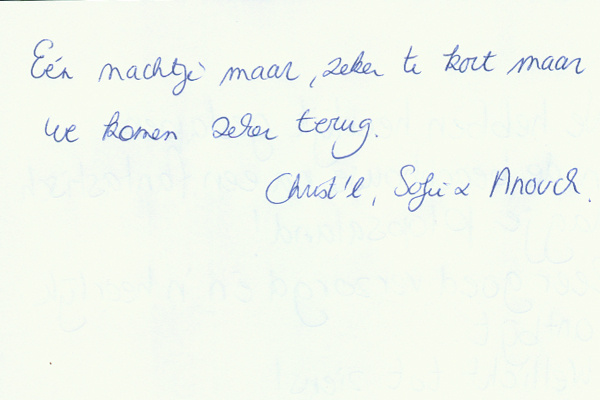 Eén nachtje maar, zeker te kort maar
we komen zeker terug.
Christ'l, Sofie & Anouck.